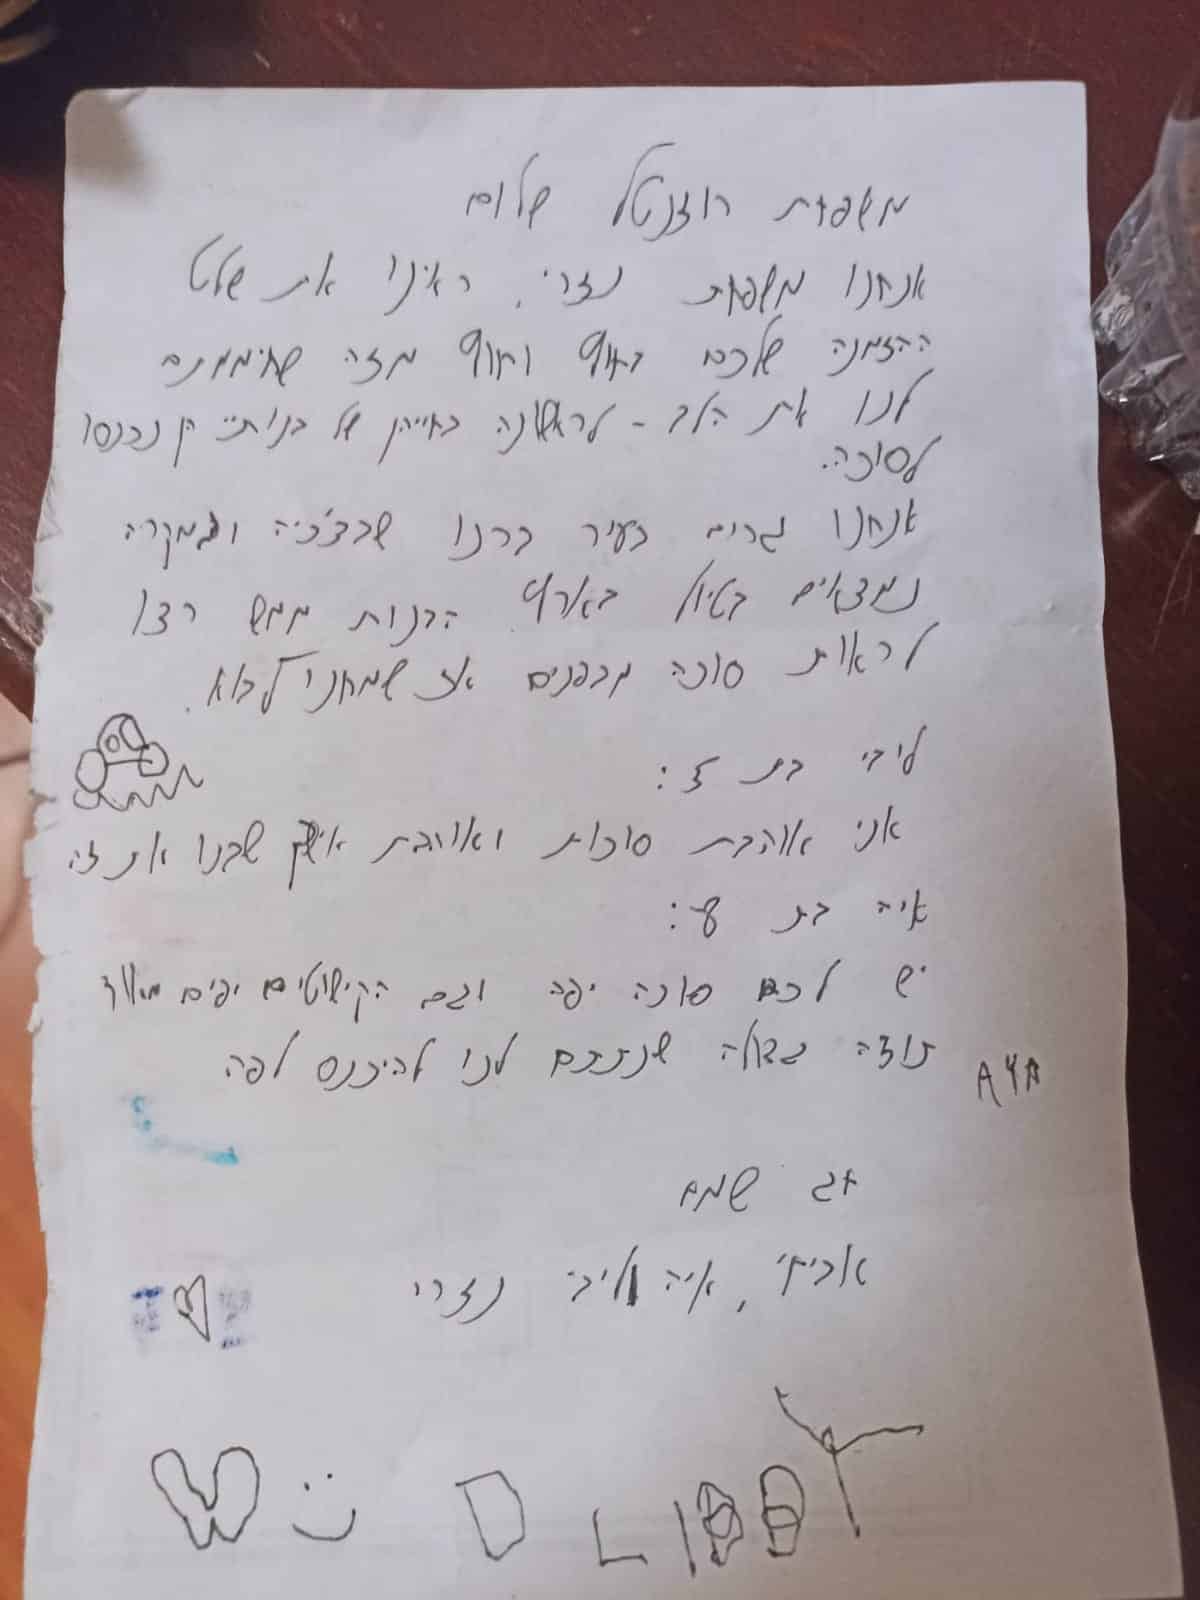 משפחת רוזנטל שלום
אנחנו משפחת נזרי, ראינו את שלט
ההזמנה שלכם בחוץ וחוץ מזה שחיממתם
לנו את הלב - לראשונה בחייהן של בנותיי הן נכנסו
לסוכה.
אנחנו גרים בעיר ברנו שבצ'כיה ובמקרה
נמצאים בטיול בארץ. הבנות ממש רצו
לראות סוכה מבפנים אז שמחנו לבוא.
ליבי בת 5:
אני אוהבת סוכות ואוהבת איך שבנו את זה
איה בת 8:
יש לכם סוכה יפה וגם הקישוטים יפים מאוד
תודה גדולה שנתתם לנו להיכנס לפה
AYA
חג שמח
איה וליבי נזרי
LIBBY